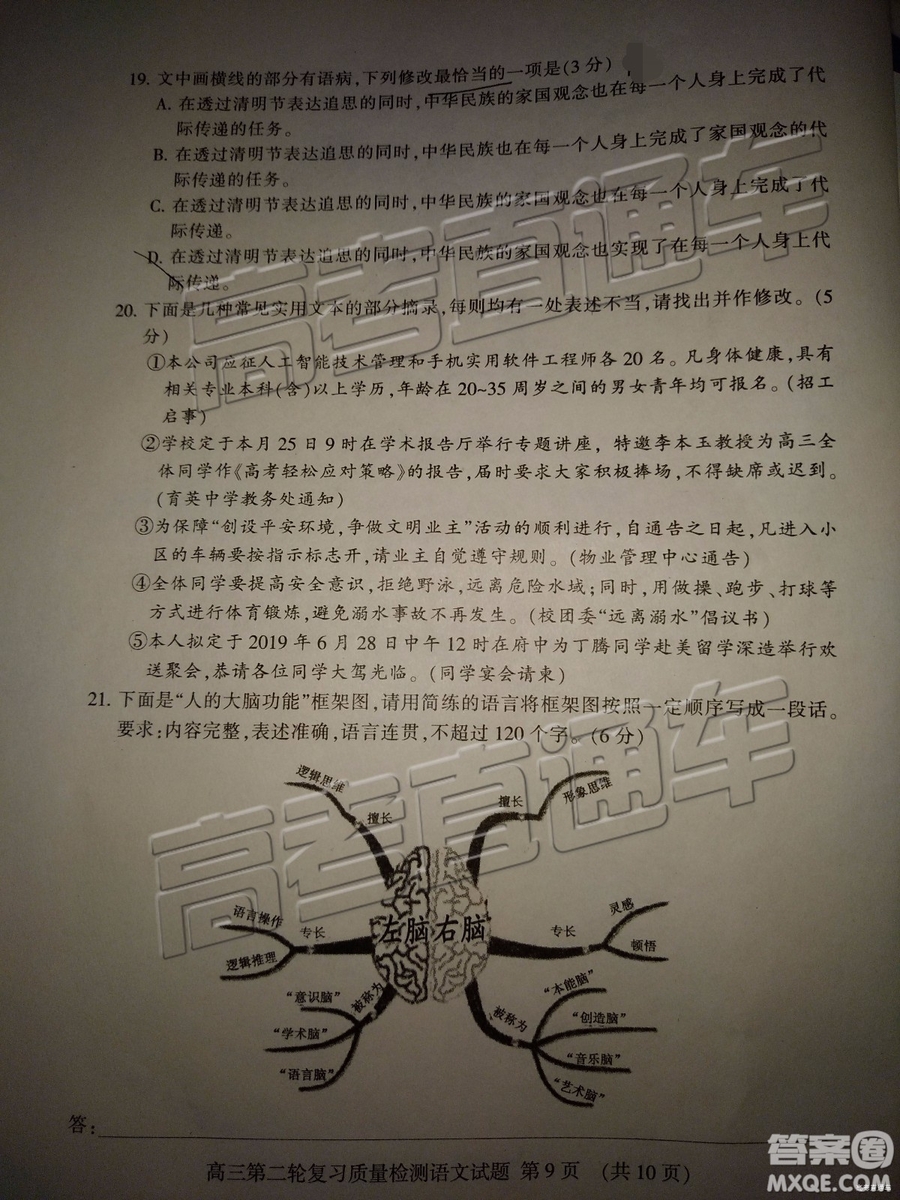 19. 文中画横线的部分有语病,下列修改最恰当的一项是(3分)
A. 在透过清明节表达追思的同时,中华民族的家国观念也在每一个人身上完成了代
际传递的任务。
B. 在透过清明节表达追思的同时,中华民族也在每一个人身上完成了家国观念的代
际传递的任务。
C. 在透过清明节表达追思的同时,中华民族的家国观念也在每一个人身上完成了代
际传递。
D. 在透过清明节表达追思的同时,中华民族的家国观念也实现了在每一个人身上代
际传递。
20. 下面是几种常见实用文本的部分摘录,每则均有一处表述不当,请找出并作修改。(5
分)
①本公司应征人工智能技术管理和手机实用软件工程师各20名。凡身体健康,具有
相关专业本科(含)以上学历,年龄在20~35周岁之间的男女青年均可报名。(招工
启事)
②学校定于本月25日9时在学术报告厅举行专题讲座,特邀李本玉教授为高三全
体同学作《高考轻松应对策略》的报告,届时要求大家积极捧场,不得缺席或迟到。
(育英中学教务处通知)
③为保障“创设平安环境,争做文明业主”活动的顺利进行,自通告之日起,凡进入小
区的车辆要按指示标志开,请业主自觉遵守规则。(物业管理中心通告)
④全体同学要提高安全意识,拒绝野泳,远离危险水域;同时,用做操、跑步、打球等
方式进行体育锻炼,避免溺水事故不再发生。(校团委“远离溺水”倡议书)
⑤本人拟定于2019年6月28日中午12时在府中为丁腾同学赴美留学深造举行欢
送聚会,恭请各位同学大驾光临。(同学宴会请柬)
21. 下面是“人的大脑功能”框架图,请用简练的语言将框架图按照一定顺序写成一段话。
要求:内容完整,表述准确,语言连贯,不超过120个字。(6分)
逻辑思维
擅长
擅长
形象思维
语言操作
逻辑推理
专长
左脑
右脑
专长
灵感
顿悟
“意识脑”
“学术脑”
“语言脑”
被称为
被称为
“本能脑”
“创造脑”
“音乐脑”
“艺术脑”
答:
高三第二轮复习质量检测语文试题 第9页 (共10页)
高考直通车
高考直通车
答案圈
MXQE.COM